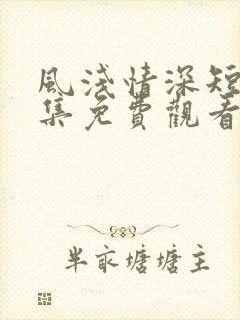 風淺情深短
集免費觀看
半畝塘塘主